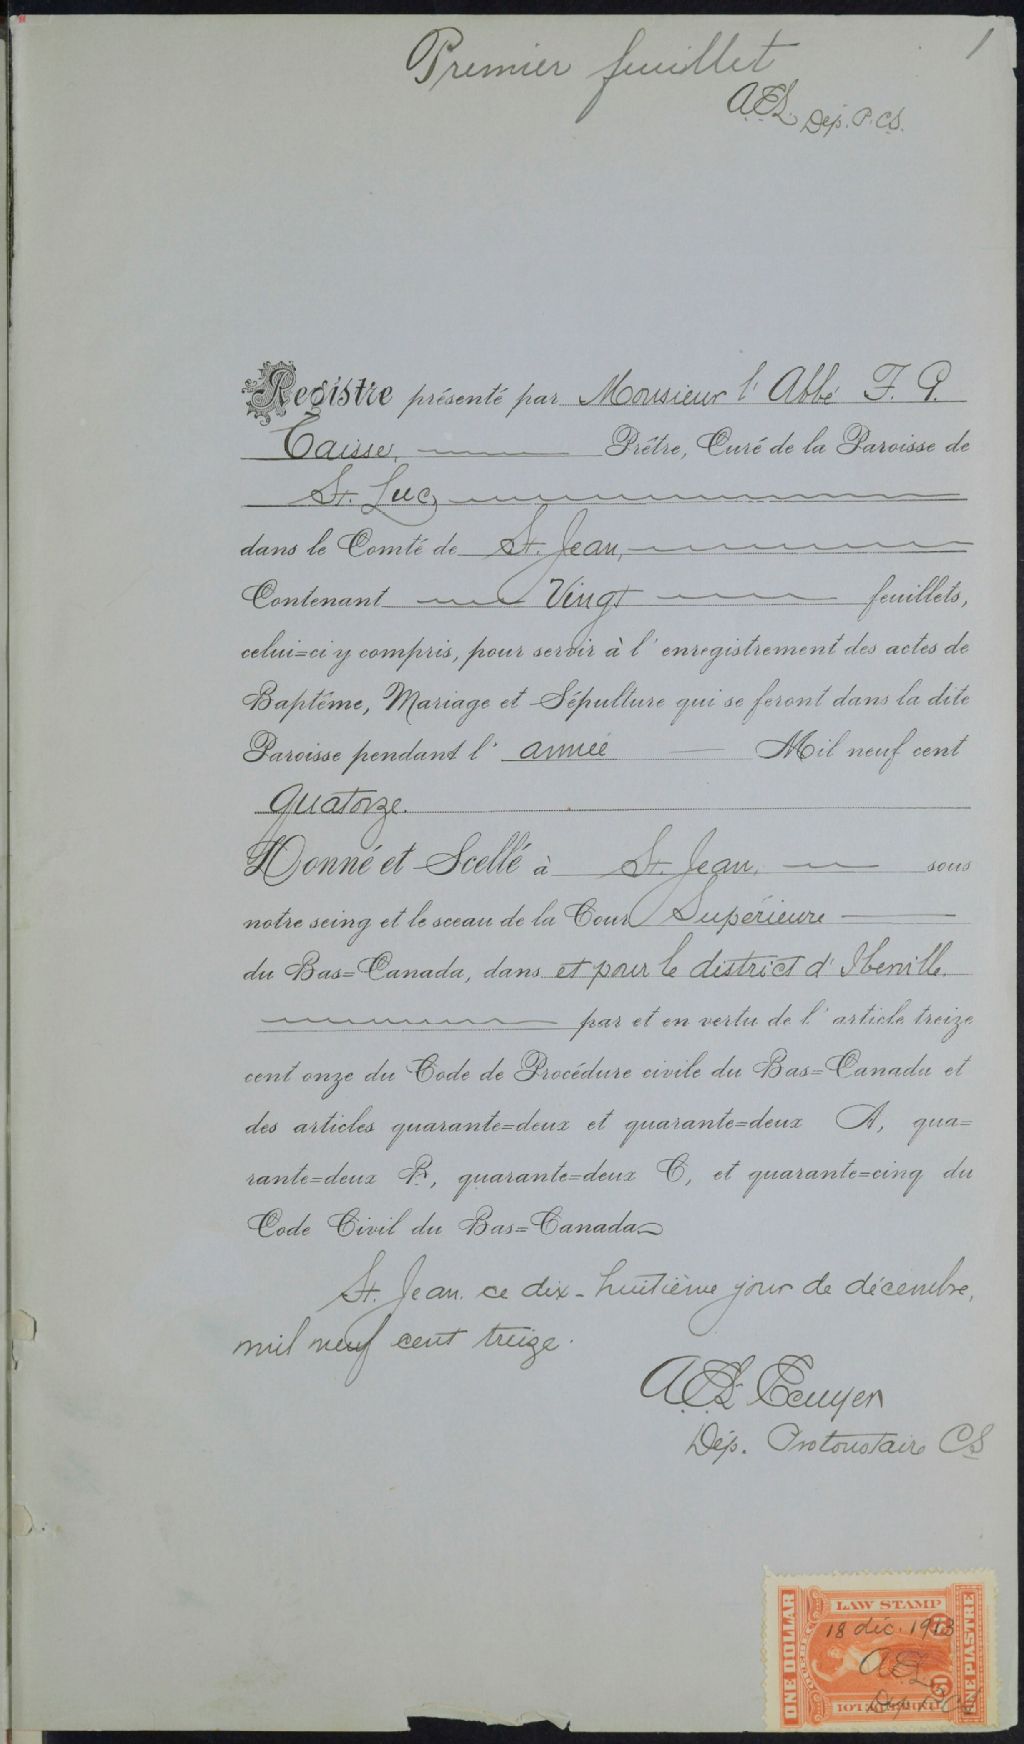 Premier feuillet
1
A.E.L. Dép. P. C.S.
Registre présenté par Monsieur l'Abbé F. G.
Caisse, Prêtre, Curé de la Paroisse de
St. Luc,
dans le Comté de St. Jean,
Contenant Vingt feuillets,
celui=ci y compris, pour servir à l'enregistrement des actes de
Baptême, Mariage et Sépulture qui se feront dans la dite
Paroisse pendant l'année Mil neuf cent
quatorze.
Donné et Scellé à St. Jean, sous
notre seing et le sceau de la Cour Supérieure
du Bas=Canada, dans et pour le district d'Iberville.
par et en vertu de l'article treize
cent onze du Code de Procédure civile du Bas=Canada et
des articles quarante=deux et quarante=deux A, qua=
rante=deux B, quarante=deux C, et quarante=cinq du
Code Civil du Bas=Canada
St. Jean. ce dix-huitième jour de décembre,
mil neuf cent treize.
A.E.L. Ecuyer
Dép. Protonotaire C.S
LAW STAMP
ONE DOLLAR
QUEBEC
18 déc. 1913
A.E.L.
Dép. P. C.S.
UNE PIASTRE
TIMBRE DE LOI